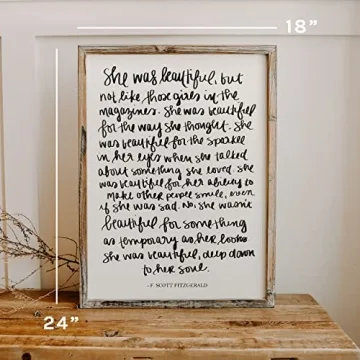 18"
She was beautiful, but
not like those girls in the
magazines. She was beautiful
for the way she thought. She
was beautiful for the sparkle
in her eyes when she talked
about something she loved. She
was beautiful for her ability to
make other people smile, even
if she was sad. No, she wasn't
beautiful for something
as temporary as her looks
She was beautiful, deep down
to her soul.
-F. SCOTT FITZGERALD
24"